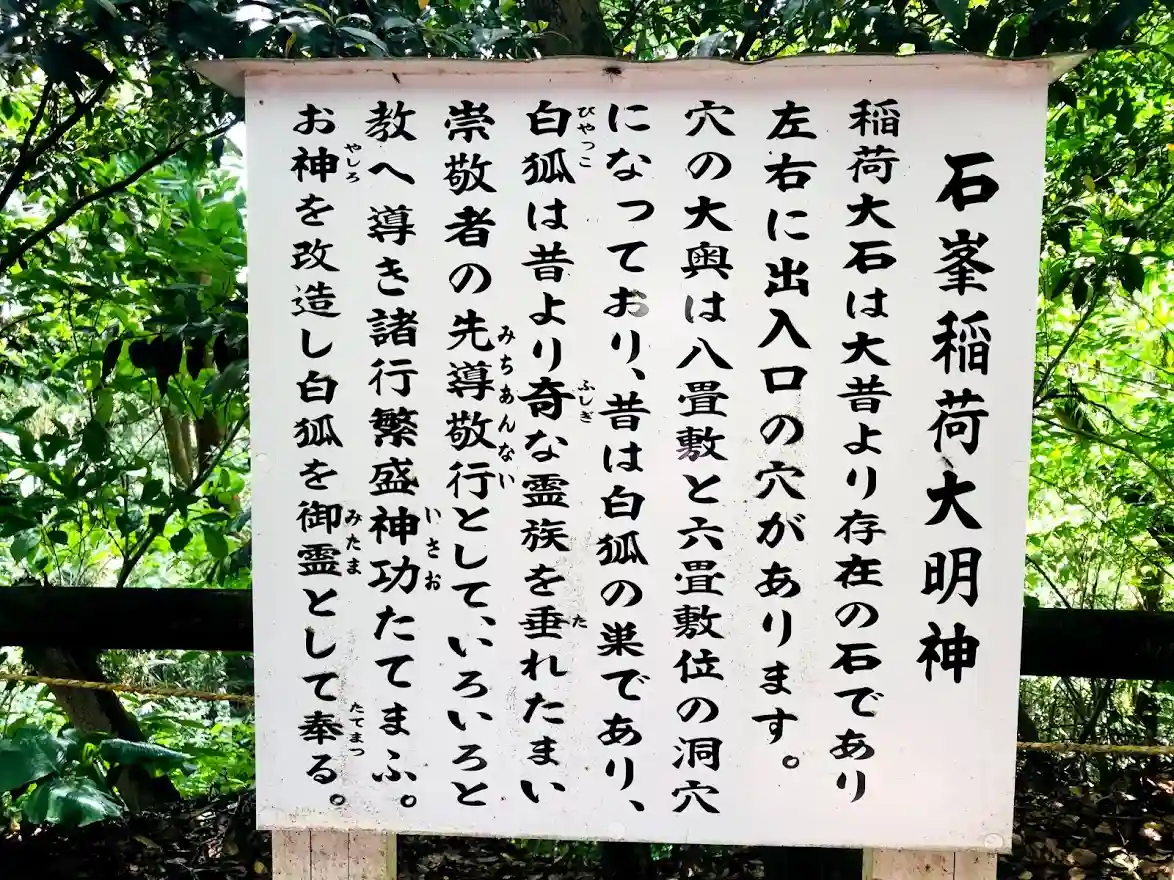 石峯稲荷大明神
稲荷大石は大昔より存在の石であり
左右に出入口の穴があります。
穴の大奥は八畳敷と六畳敷位の洞穴
になっており、昔は白狐の巣であり、
びゃっこ
白狐は昔より奇な霊族を垂れたまい
ふしぎ
た
崇敬者の先導敬行として、いろいろと
みちあんない
教へ導き諸行繁盛神功たてまふ。
いさお
お神を改造し白狐を御霊として奉る。
やしろ
みたま
たてまつ